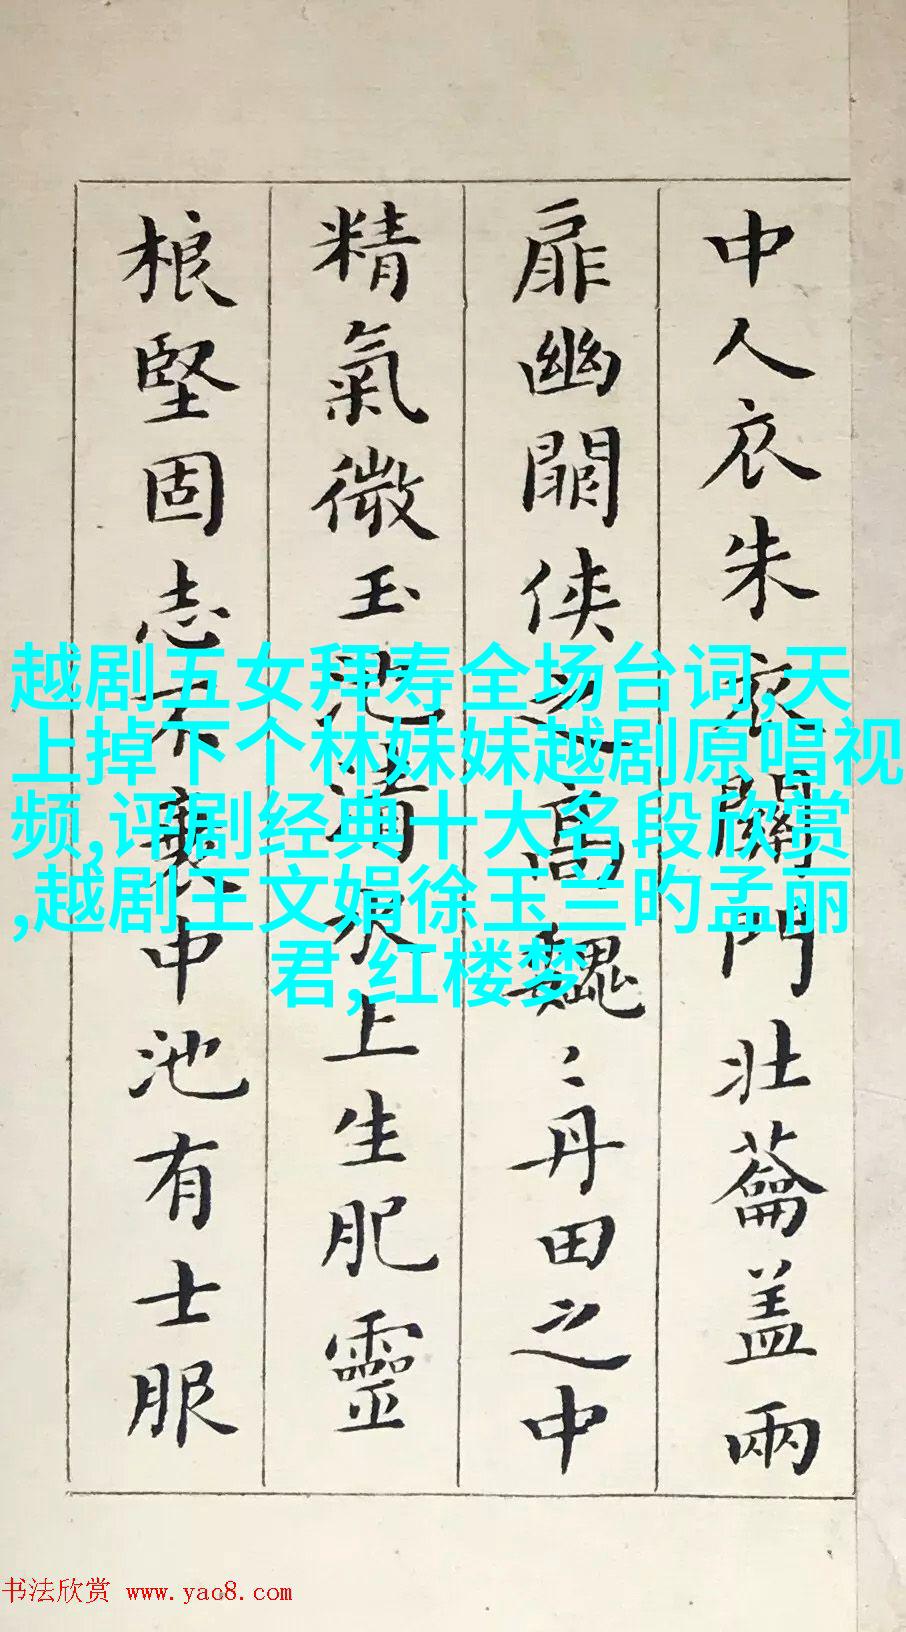 中人衣朱衣關門壮蘥盖兩
扉幽闗侠之高魏〻丹田之中
精氣微玉池清水上生肥靈
根堅固志不衰中池有士服
越剧五女拜寿全场台词,天
上掉下个林妹妹越剧原唱视
频,评剧经典十大名段欣赏
,越剧王文娟徐玉兰旳孟丽
君,红楼梦
书法欣赏 www.yac8.com